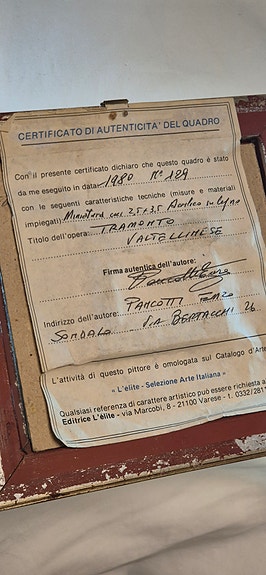 CERTIFICATO DI AUTENTICITA' DEL QUADRO
Con il presente certificato dichiaro che questo quadro è stato
da me eseguito in data 1980 N° 129
con le seguenti caratteristiche tecniche (misure e materiali
impiegati) Miniatura cm 2,5x3,5 Acrilico su legno
Titolo dell'opera: TRAMONTO
VALTELLINESE
Firma autentica dell'autore:
Indirizzo dell'autore: PANCOTTI
SONDALO VIA BERTACCHI 26
L'attività di questo pittore è omologata sul Catalogo d'Arte
« L'élite - Selezione Arte Italiana »
Qualsiasi referenza di carattere artistico può essere richiesta a
Editrice L'élite - via Marcobi, 8 - 21100 Varese - t. 0332/281